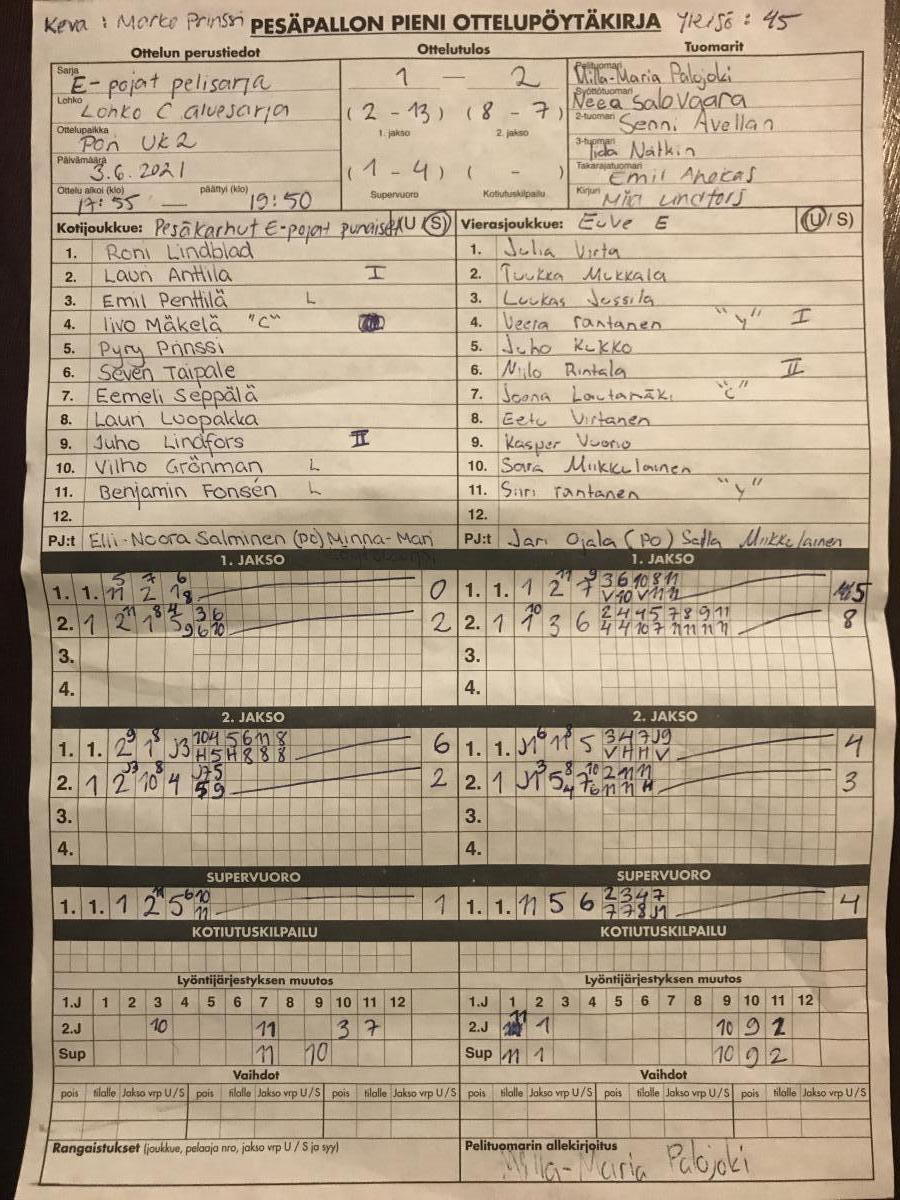 Keva : Marko Prinssi PESÄPALLON PIENI OTTELUPÖYTÄKIRJA Yleisö : 45
Ottelun perustiedot Ottelutulos Tuomarit
Sarja E-pojat pelisarja 1 — 2 Pelituomari Milla-Maria Palojoki
Lohko Lohko C aluesarja (2 - 13) (8 - 7) Syöttötuomari Neea Salovaara
1. jakso 2. jakso 2-tuomari Senni Avellan
Ottelupaikka Pori UK2 3-tuomari Iida Nätkin
Päivämäärä 3.6.2021 (1 - 4) ( - ) Takarajatuomari Emil Ahokas
Ottelu alkoi (klo) 17:55 — päättyi (klo) 19:50 Supervuoro Kotiutuskilpailu Kirjuri Mia Lindfors
Kotijoukkue: Pesäkarhut E-pojat punaiset (U (S)) Vierasjoukkue: Euve E (U / S)
1. Roni Lindblad 1. Julia Virta
2. Lauri Anttila I 2. Tuukka Mukkala
3. Emil Penttilä L 3. Luukas Jussila
4. Iivo Mäkelä "C" 4. Veera rantanen "y" I
5. Pyry Prinssi 5. Juho Kukko
6. Seven Taipale 6. Niilo Rintala II
7. Eemeli Seppälä 7. Joona Lautamäki "C"
8. Lauri Luopakka 8. Eetu Virtanen
9. Juho Lindfors II 9. Kasper Vuorio
10. Vilho Grönman L 10. Sara Miikkulainen
11. Benjamin Fonsén L 11. Siiri rantanen "y"
12. 12.
PJ:t Elli-Noora Salminen (PO) Minna-Mari PJ:t Jari Ojala (PO) Salla Miikkulainen
1. JAKSO 1. JAKSO
1. 1. 11 5 2 7 1 6 8 0 1. 1. 1 2 11 7 9 3 6 10 8 11 5
V 10 V 11 11
2. 1 2 11 1 8 5 4 9 3 6 2 2. 1 1 10 3 6 2 4 4 5 7 8 9 11 8
6 10 4 4 10 7 11 11 11 11
3. 3.
4. 4.
2. JAKSO 2. JAKSO
1. 1. 2 9 1 8 J3 10 4 5 6 11 8 6 1. 1. J1 6 11 8 5 3 4 7 J9 4
H 5 H 8 8 8 V H H V
2. 1 2 J3 10 8 4 J7 5 2 2. 1 J1 3 5 8 4 7 10 6 2 11 11 3
5 9 11 11 H
3. 3.
4. 4.
SUPERVUORO SUPERVUORO
1. 1. 1 2 11 5 6 10 1 1. 1. 11 5 6 2 3 4 7 4
11 7 7 8 J1
KOTIUTUSKILPAILU KOTIUTUSKILPAILU
Lyöntijärjestyksen muutos Lyöntijärjestyksen muutos
1.J 1 2 3 4 5 6 7 8 9 10 11 12 1.J 1 2 3 4 5 6 7 8 9 10 11 12
2.J 10 11 3 7 2.J 11 1 10 9 2
Sup 11 10 Sup 11 1 10 9 2
Vaihdot Vaihdot
pois tilalle Jakso vrp U / S pois tilalle Jakso vrp U / S pois tilalle Jakso vrp U / S pois tilalle Jakso vrp U / S pois tilalle Jakso vrp U / S pois tilalle Jakso vrp U / S
Rangaistukset (joukkue, pelaaja nro, jakso vrp U / S ja syy) Pelituomarin allekirjoitus
Milla-Maria Palojoki